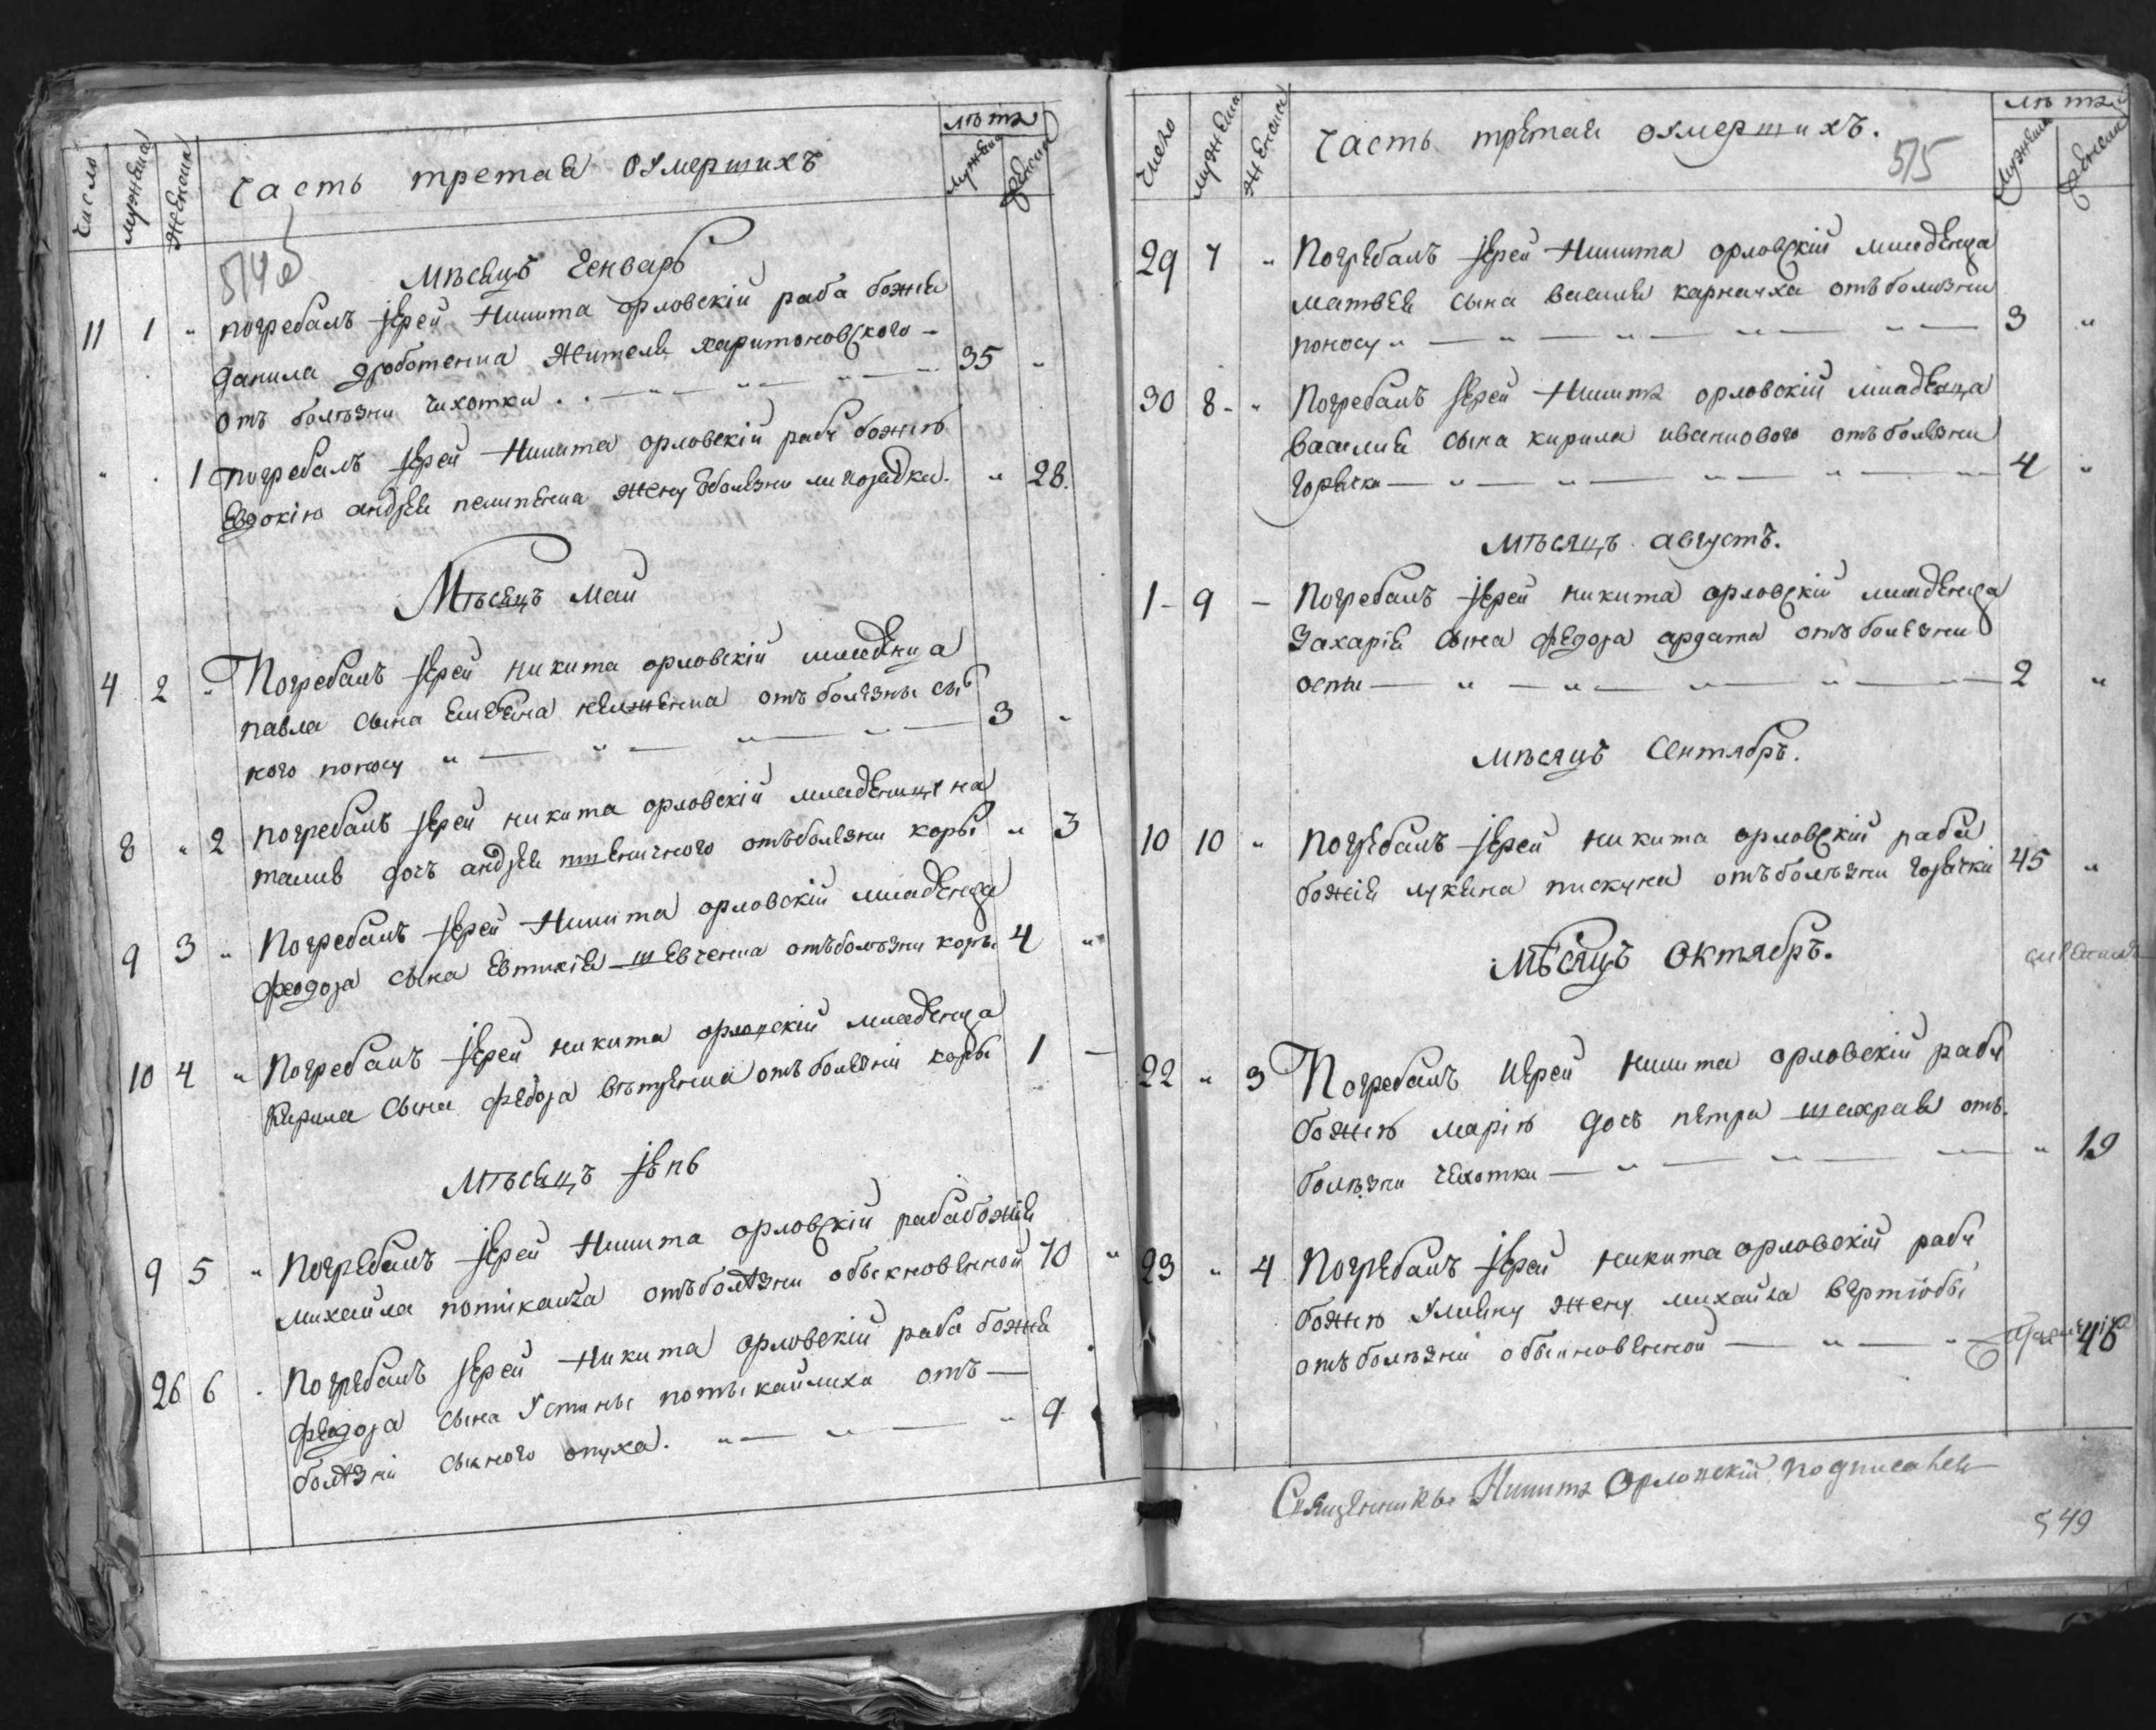 Число
мужеска
женска
Часть третая оумершихъ
лѣта
мужеска
женска
514
Мѣсецъ Генварь
11 1 " погребалъ іерей Никита орловскій раба божия
данила дроботенка жителя харитоновского -
отъ болѣзни чихотки . . — " — " — " — 35 "
" . 1 погребалъ іерей Никита орловскій рабу божию
Евдокію андрея пилипенка жену отболезни лихорадки. " 28.
Мѣсяцъ Май
4 2 " Погребалъ іерей никита орловскій младенца
павла сына отъ болезны
кого поносу " — " — " — " — 3 "
8 " 2 погребалъ іерей никита орловскій младеницу на
талию дочъ андрея пшеничного отъ болезни коры " 3
9 3 " Погребалъ іерей Никита орловскій младенца
феодора сына Евтихія шевченка отъ болѣзни коры 4 "
10 4 " Погребалъ іерей никита орловскій младенца
Кирила сына федора отъ болезни коры 1 —
Мѣсяцъ
9 5 " Погребалъ іерей Никита орловскій раба божія
михайла потикайла отъ болѣзни обыкновенной 70 "
26 6 . Погребалъ іерей Никита орловскій раба божия
федора сына Устины потыкайлихи отъ —
болѣзни опуха. " — " — " 9
Число
мужеска
женска
Часть третая оумершихъ.
515
лѣта
мужеска
женска
29 7 " Погребалъ іерей Никита орловскій младенца
матвея сына василия карначха отъ болѣзни
поносу " — " — " — " — " — 3 "
30 8 - " Погребалъ іерей Никита орловскій младенца
василия сына кирила иванцового отъ болезни
горячки — " — " — " — " — 4 "
мѣсяцъ августъ.
1 - 9 — Погребалъ іерей никита орловскій младенца
Захарія сына федора ардата отъ болезни
оспы — " — " — " — " — 2 "
мѣсяцъ Сентябръ.
10 10 " Погребалъ іерей никита орловскій раба
божія лукяна пискуна отъ болѣзни горячки 45 "
Мѣсяцъ Октябръ.
22 " 3 Погребалъ Иерей Никита орловскій рабу
божию марію дочъ петра шахрая отъ
болѣзни чихотки — " — " — " 19
23 " 4 Погребалъ іерей никита орловскій рабу
божию Улияну жену михайла вертіобы
отъ болѣзни обыкновенной — " — " — 45
Священникъ Никита Орловскій подписалъ
549